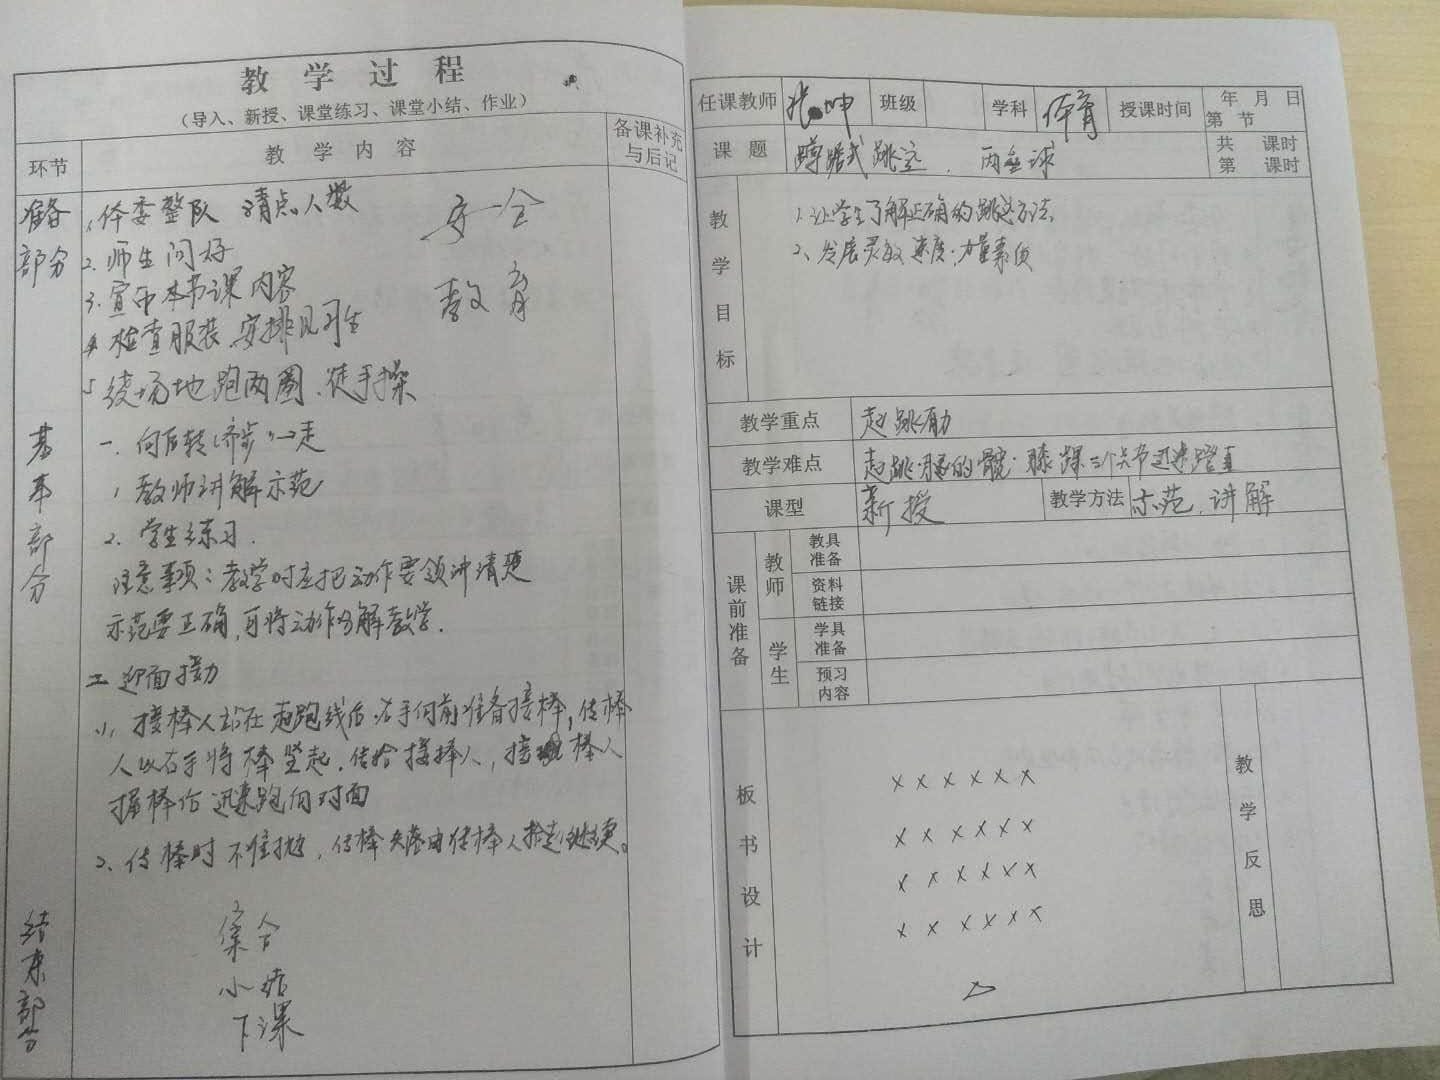 教 学 过 程
（导入、新授、课堂练习、课堂小结、作业）
环节 教 学 内 容 备课补充与后记
准备部分
1、体委整队 清点人数
2. 师生问好
3. 宣布本节课内容
4 检查服装、安排见习生
5 绕场地跑两圈、徒手操
安全
教育
基本部分
一. 向后转（齐步）→走
1 教师讲解示范
2. 学生练习.
注意事项：教学时应把动作要领讲清楚
示范要正确,可将动作分解教学.
二 迎面接力
1、接棒人站在起跑线后,右手向前准备接棒,传棒
人以右手将棒竖起.传给接棒人,接棒人
握棒后迅速跑向对面
2、传棒时不准抛,传棒失落由传棒人拾起继续。
结束部分
集合
小结
下课
任课教师 张坤 班级 学科 体育 授课时间 年 月 日 第 节
课 题 蹲踞式跳远. 两垒球 共 课时 第 课时
教学目标
1.让学生了解正确的跳远方法,
2、发展灵敏速度.力量素质
教学重点 起跳有力
教学难点 起跳腿的髋.膝踝三个关节迅速蹬直
课型 新授 教学方法 示范.讲解
课前准备
教师 教具准备
资料链接
学生 学具准备
预习内容
板书设计
× × × × × ×
× × × × × ×
× × × × × ×
× × × × × ×
教学反思